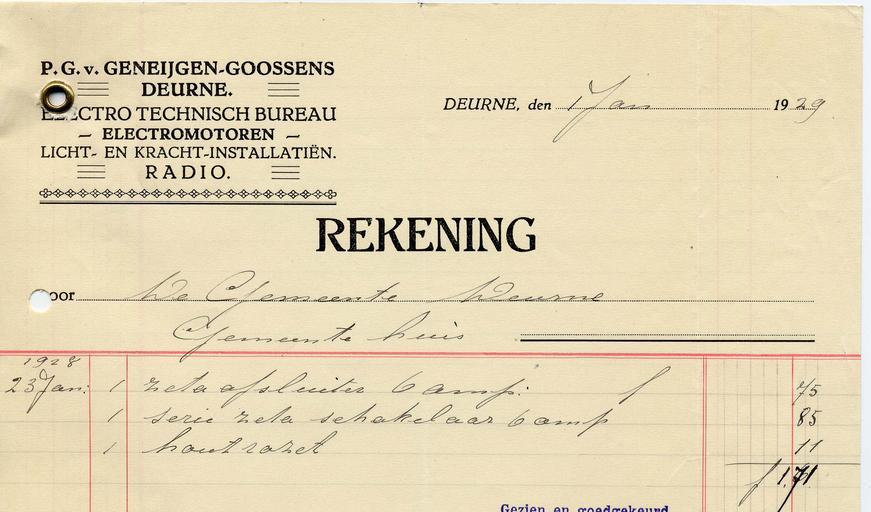 P.G. v. GENEIJGEN-GOOSSENS
DEURNE.
ELECTRO TECHNISCH BUREAU
– ELECTROMOTOREN –
LICHT- EN KRACHT-INSTALLATIËN.
RADIO.
DEURNE, den 1 Jan 1929
REKENING
oor De Gemeente Deurne
Gemeente huis
1928
23 Jan: 1 zeta afsluiter 6 amp: f 75
1 serie zeta schakelaar 6 amp 85
1 hout rozet 11
f 1,71
Gezien en goedgekeurd